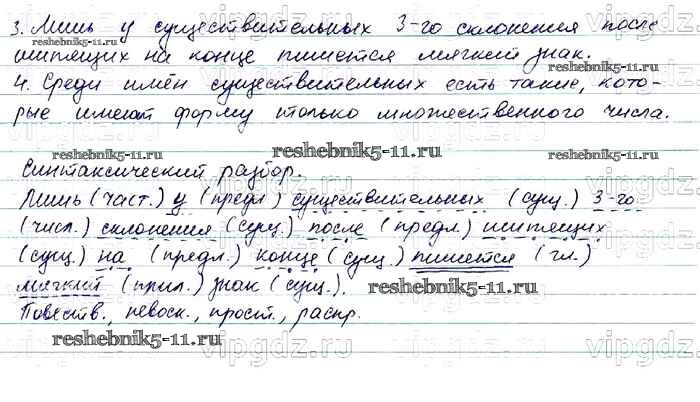 3. Лишь у существительных 3-го склонения после
шипящих на конце пишется мягкий знак.
4. Среди имён существительных есть такие, кото-
рые имеют форму только множественного числа.
Синтаксический разбор.
Лишь (част.) у (предл.) существительных (сущ.) 3-го
(числ.) склонения (сущ.) после (предл.) шипящих
(сущ.) на (предл.) конце (сущ.) пишется (гл.)
мягкий (прил.) знак (сущ.).
Повеств., невоск., прост., распр.
reshebnik5-11.ru
reshebnik5-11.ru
reshebnik5-11.ru
reshebnik5-11.ru
reshebnik5-11.ru
reshebnik5-11.ru
reshebnik5-11.ru
vipgdz.ru
vipgdz.ru
vipgdz.ru
vipgdz.ru
vipgdz.ru
vipgdz.ru